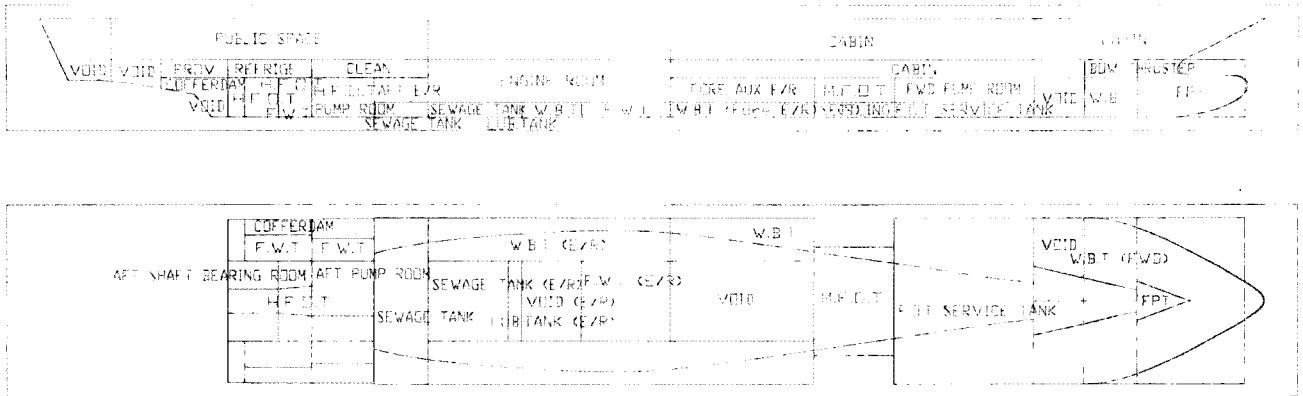 PUBLIC SPACE CABIN
VOID VOID PROV REFRIGE CLEAN ENGINE ROOM CABIN BOW THRUSTER
COFFERDAM H.F.O.T AFT E/R FORE AUX E/R M.F.O.T FWD PUMP ROOM
VOID H.F.O.T VOID W.B
F.W. PUMP ROOM SEWAGE TANK W.B.T W.B.T SERVICE TANK
SEWAGE TANK LUB TANK
COFFERDAM
F.W.T F.W.T W.B.T (E/R) W.B.T VOID
W.B.T (FWD)
AFT SHAFT BEARING ROOM AFT PUMP ROOM
SEWAGE TANK (E/R) F.W.T (E/R)
H.F.O.T VOID (E/R) VOID M.F.O.T FPT
SERVICE TANK
SEWAGE TANK LUB TANK (E/R)